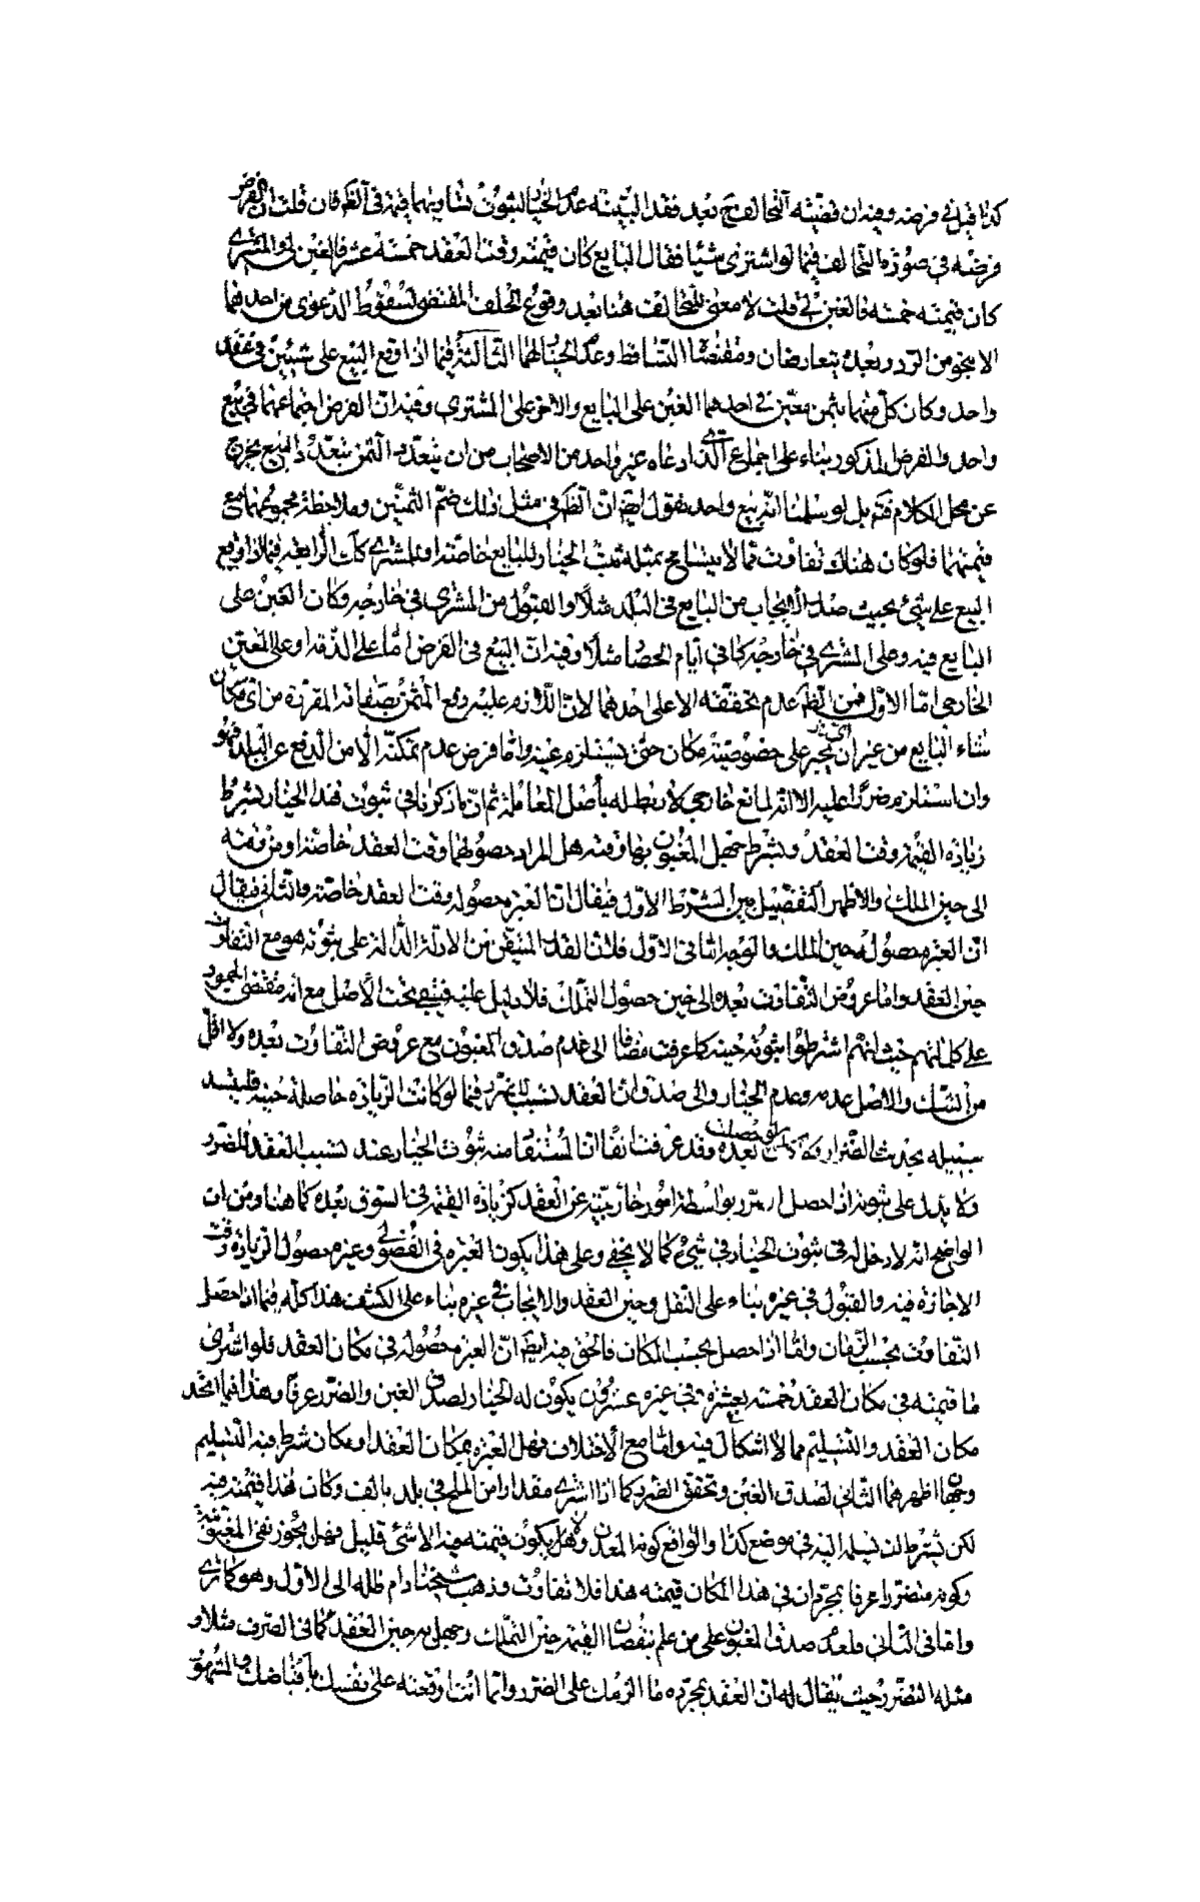 كذا قيل في فرضه وفيه ان قضيّة التحالف ح بعد فقد البيّنة عدم الخيار لثبوت تساويهما قيمة في الظ فان قلت ان الفرض
فرضه في صورة التحالف فيما لو اشترى شيئا فقال البايع كان قيمته وقت العقد خمسة عشر فالغبن لي والمشترى
كان قيمته خمسه فالغبن لي قلت لا معنى للتحالف هنا بعد وقوع الحلف المقتضى لسقوط الدعوى من احدهما
الا بنحو من الرد وبعده يتعارضان ومقتضاه التساقط وعدم الخيار لهما الثالثة فيما اذا وقع البيع على شيئين في عقد
واحد وكان كل منهما بثمن معيّن في احدهما الغبن على البايع والاخر على المشترى وفيه انّ الفرض اجتماعهما في بيع
واحد والفرض المذكور بناء على اجماع الّذى ادعاه غير واحد من الاصحاب من ان يتعدّد الثمن يتعدّد المبيع يخرج
عن محل الكلام فتم بل لو سلمنا انّه بيع واحد يقول ايض انّ الظ في مثل ذلك ضمّ الثمنين وملاحظة مجموعهما مع
قيمتهما فلو كان هناك تفاوت ممّا لا يتسامح بمثله يثبت الخيار للبايع خاصّة او للمشترى كك الرابعه فيما اذا وقع
البيع على شيئ بحيث صدر الايجاب من البايع في البلد مثلا والقبول من المشترى في خارجه وكان الغبن على
البايع فيه وعلى المشترى في خارجه كما في ايام الحصار مثلا وفيه انّ البيع في الفرض امّا على الذّمة او على المعيّن
الخارجي امّا الاوّل فمن الظ عدم تحققه الا على احدهما لانّ اللّازم عليه دفع المثمن بصفاته المقررة من اى مكان
شاء البايع من غير ان يجبر على خصوصيّة مكان حتى يستلزم غبنه وامّا فرض عدم تمكنه الّا من الدفع عن البلد فهو
وان استلزم ضررا عليه الا انّه لمانع خارجي لا ربط له بأصل المعاملة ثم انّ ما ذكرنا في ثبوت هذا الخيار بشرط
زيادة القيمة وقت العقد وبشرط جهل المغبون بها وقته هل المراد حصولهما وقت العقد خاصّة او من وقته
الى حين الملك والاظهر التفصيل بين الشرط الاوّل فيقال انّ العبرة بحصوله وقت العقد خاصّة والثاني فيقال
انّ العبرة بحصوله حين الملك والوجه امّا في الاوّل فلانّ القدر المتيقّن من الادلّة الدّالة على ثبوته هو مع التفاوت
حين العقد وامّا عروض التّفاوت بعده الى حين حصول التملك فلا دليل عليه فيبقى تحت الاصل مع انّه مقتضى الجمود
على كلماتهم حيث انهم اشترطوا ثبوته حينه كما عرفت مضافا الى عدم صدق المغبون مع عروض التفاوت بعده ولا اقلّ
من الشك والاصل عدمه وعدم الخيار والى صدق انّ العقد تسبب للضرر فيما لو كانت الزيادة حاصلة حينه
سببيله بحدث الضرر بعده وقد عرفت انفا انا لسنتفا منه ثبوت الخيار عند تسبب العقد للضرر
ولا يدل على ثبوته اذا حصل الضرر بواسطة امور خارجيّة عن العقد كزيادة القيمة في السوق بعده كما هنا ومن انّ
الواضح انّه لا دخل له في ثبوت الخيار في شيئ كما لا يخفى وعلى هذا يكون العبرة في الفضولي وغيره بحصول الزيادة وقت
الاجازة فيه والقبول في غيره بناء على النقل وحين العقد والايجاب في غيره بناء على الكشف هذا كلّه فيما اذا حصل
التّفاوت بحسب الزّمان وامّا اذا حصل بحسب المكان فالحق فيه ايض انّ العبرة بحصوله في مكان العقد فلو اشترى
ما قيمته في مكان العقد خمسة بعشرة وفي غيره عشرون يكون له الخيار لصدق الغبن والضرر عرفا وهذا فيما اتحد
مكان العقد والتسليم مما لا اشكال فيه وامّا مع الاختلاف فهل العبرة بمكان العقد او مكان شرط فيه التسليم
وجهان اظهرهما الثّاني لصدق الغبن وتحقق الضرر كما اذا اشترى مقدارا من الملح في بلد بالف وكان هذا قيمته فيه
لكن بشرط ان يسلمه اليه في موضع كذا والواقع كونه المعدن وهل يكون قيمته فيه الا شئ قليل فهل يجوز نفى المغبونيّة
وكونه متضررا عرفا بمجرّد ان في هذا المكان قيمته هذا فلا تفاوت وذهب شيخنا دام ظله الى الاوّل وهو كما ترى
وامّا في الثّاني فلعدم صدق المغبون على من علم بنقصان القيمة حين التملك وجهل به حين العقد كما في الصّرف مثلا و
مثله التضرر حيث يقال له انّ العقد بمجرّده ما الزمك على الضرر وانّما انت اوقعته على نفسك باقباضك والمشهور